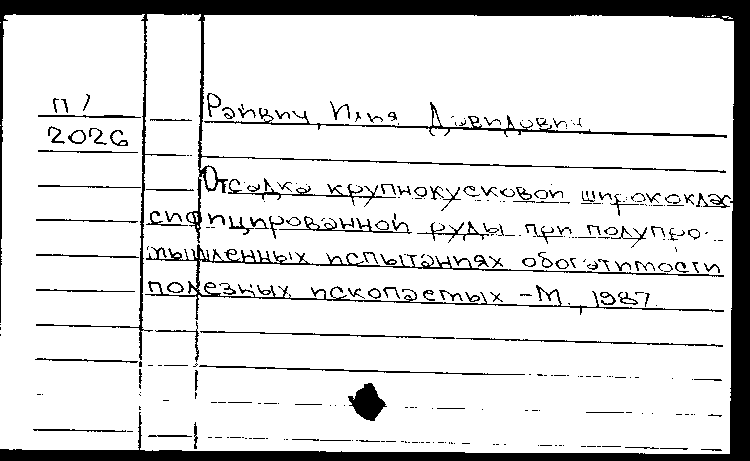 П/
2026
Райвич, Илья Давидович
Отсадка крупнокусковой ширококлас
сифицированной руды при полупро-
мышленных испытаниях обогатимости
полезных ископаемых -М., 1987